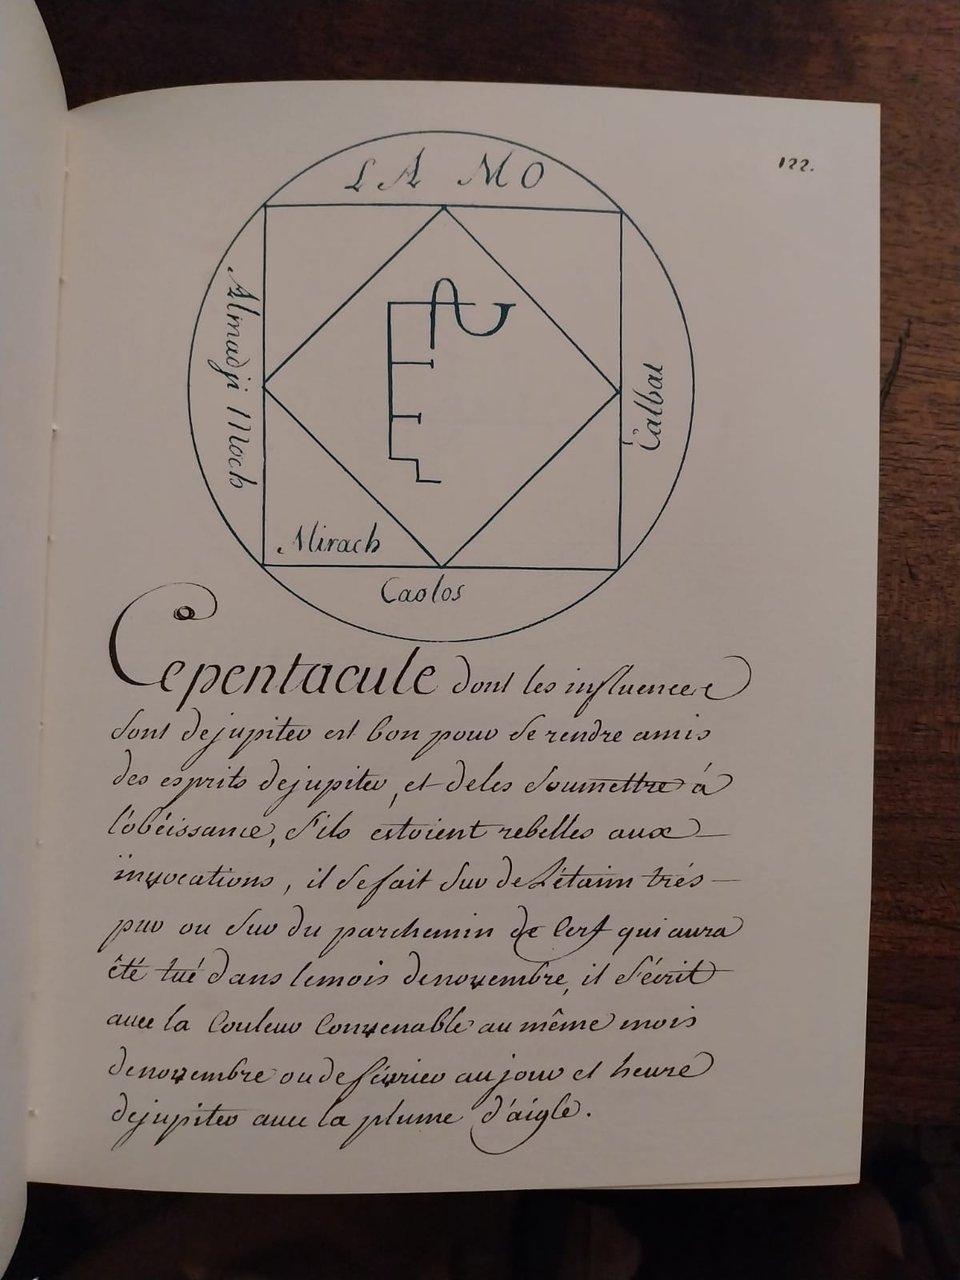 122.
LA MO
Almadji Moch
Calbat
Mirach
Caolos
Ce pentacule dont les influences
sont de jupiter est bon pour se rendre amis
des esprits de jupiter, et de les soumettre á
l'obéissance, s'ils estoient rebelles aux
invocations, il se fait sur de L'étaim trés
pur ou sur du parchemin de Cerf qui aura
été tué dans le mois de novembre, il s'écrit
avec la Couleur Convenable au même mois
de novembre ou de février au jour et heure
de jupiter avec la plume d'aigle.